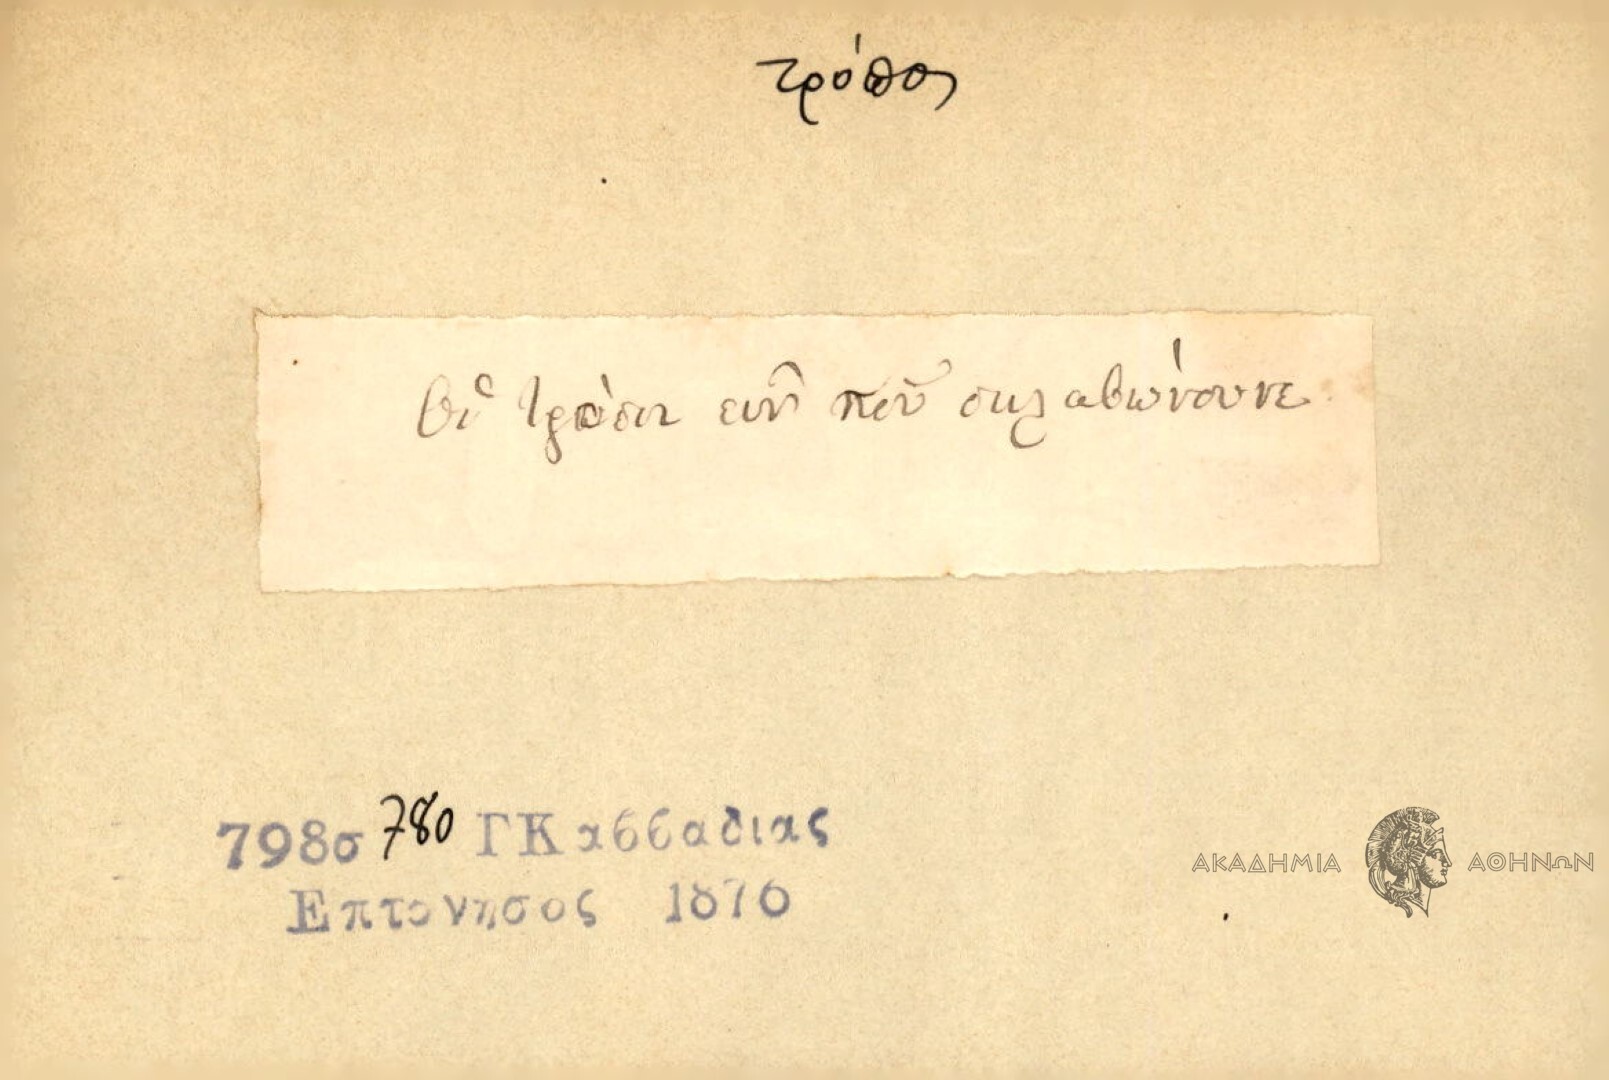 τρόπος
Οἱ τρόποι εινὶ ποῦ σκλαβώνουνε
798σ 780 ΓΚαββαδιας
Επτανησος 1876
ΑΚΑΔΗΜΙΑ ΑΘΗΝΩΝ